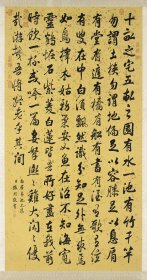 十畝之宅五畝之園有水一池有竹千竿
勿謂土狹勿謂地偏足以容膝足以息肩
有堂有庭有橋有船有書有酒有歌有弦
有叟在中白鬚飄然識分知足外無求焉
如鳥擇木姑務巢安魚在沼不知海寬
靈鶴怪石紫菱白蓮皆吾所好盡在我前
時飲一杯或吟一篇妻孥熙熙雞犬閑閑優
哉游哉吾將終老乎其間